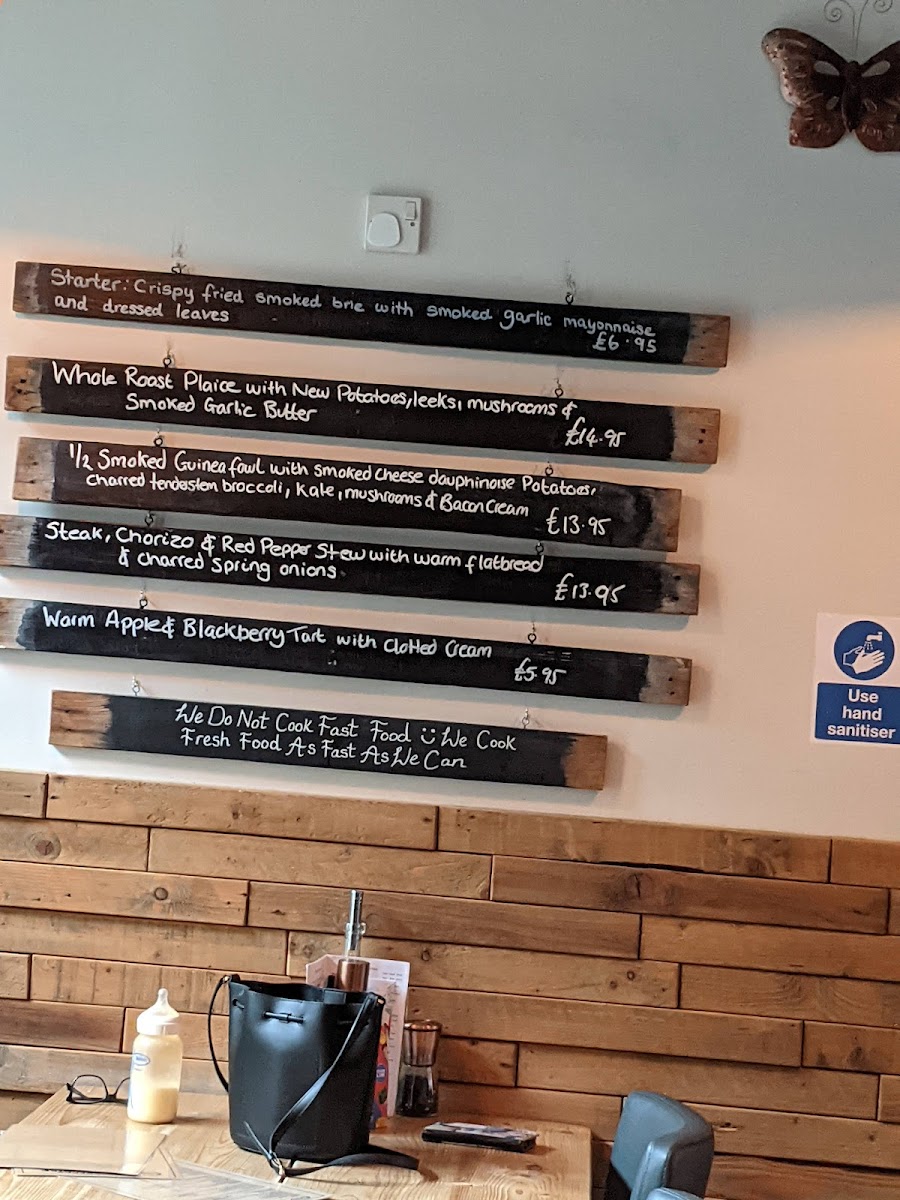 Starter: Crispy fried smoked brie with smoked garlic mayonnaise
and dressed leaves
£6.95
Whole Roast Plaice with New Potatoes, leeks, mushrooms &
Smoked Garlic Butter
£14.95
1/2 Smoked Guinea fowl with smoked cheese dauphinoise Potatoes,
charred tenderstem broccoli, Kale, mushrooms & Bacon Cream
£13.95
Steak, Chorizo & Red Pepper Stew with warm flatbread
& charred spring onions.
£13.95
Warm Apple & Blackberry Tart with Clotted Cream
£5.95
We Do Not Cook Fast Food We Cook
Fresh Food As Fast As We Can
Use
hand
sanitiser